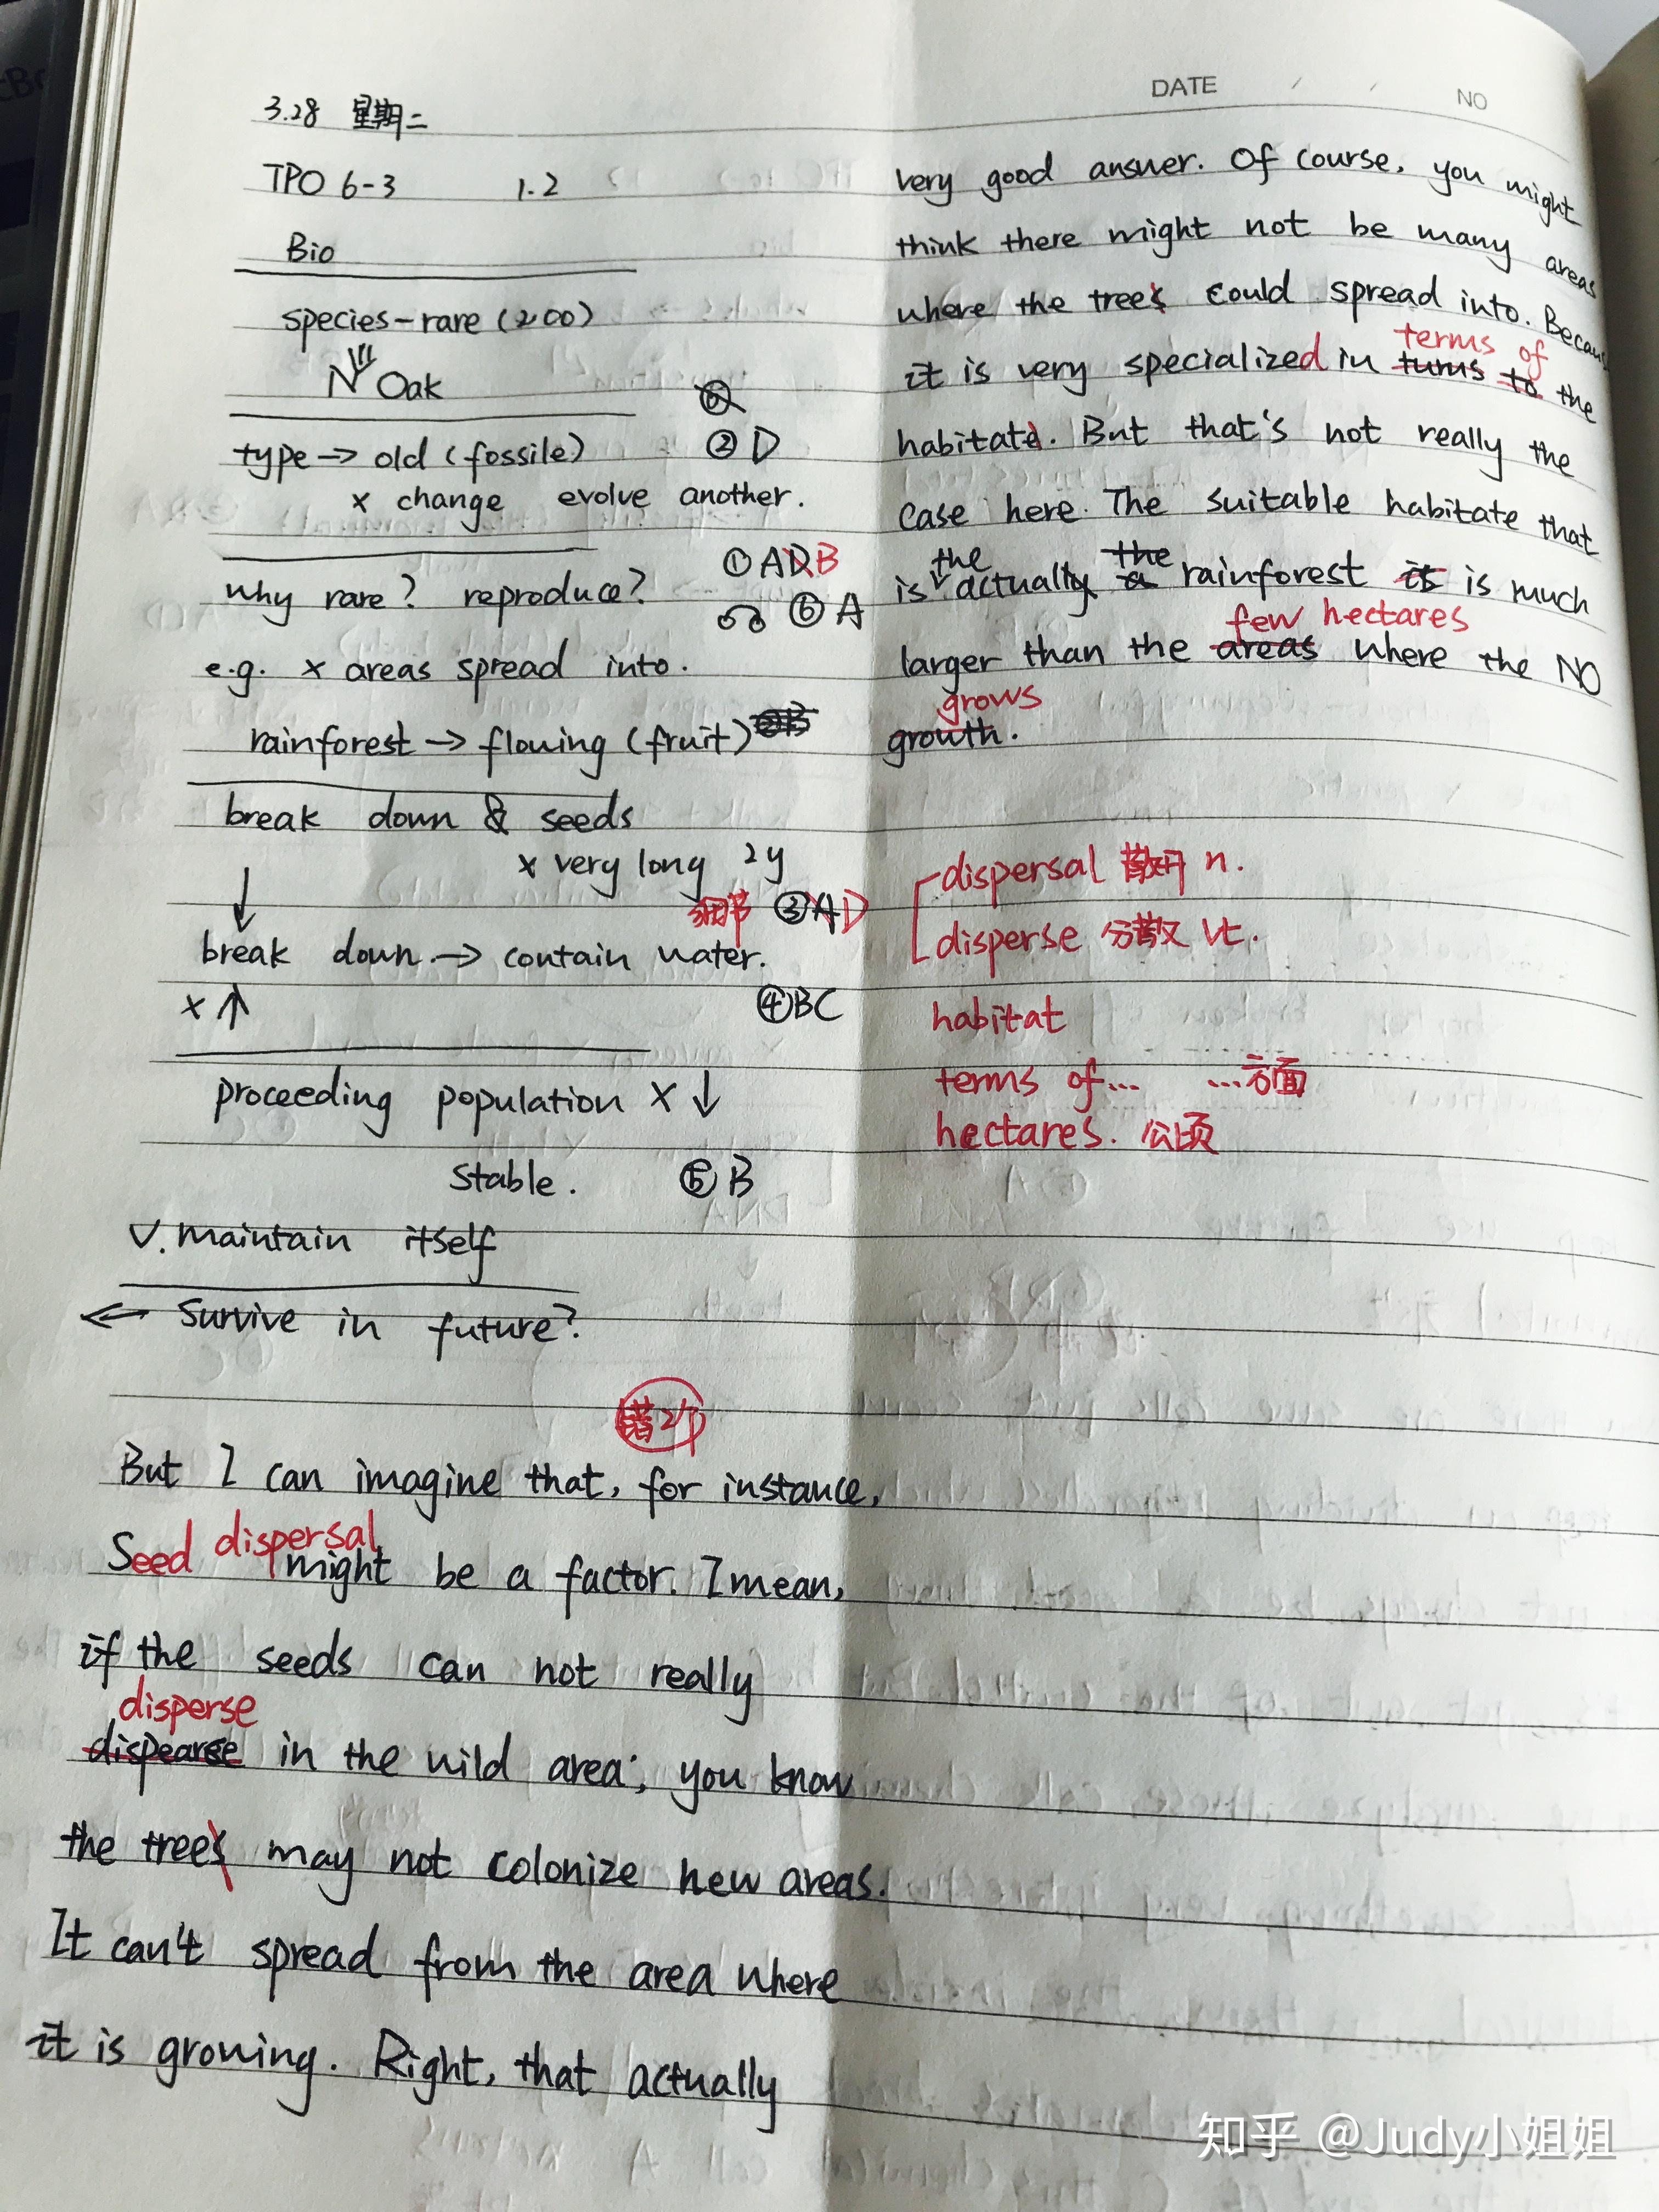 3.28 星期二
TPO 6-3 1.2
Bio
species-rare (200)
N Oak
type → old (fossile)
② D
× change evolve another.
① ADB
why rare? reproduce?
⑥ A
e.g. × areas spread into.
rainforest → flowing (fruit)
break down & seeds
× very long 2y
细节 ③ AD
break down → contain water.
× ↑
④ BC
proceeding population × ↓
stable.
⑤ B
V. maintain itself
← survive in future?
错2个
But I can imagine that, for instance,
Seed dispersal might be a factor. I mean,
if the seeds can not really
disperse
dispearse in the wild area; you know
the trees may not colonize new areas.
It can't spread from the area where
it is growing. Right, that actually
DATE / / NO
very good answer. Of course, you might
think there might not be many areas
where the trees could spread into. Because
terms of
it is very specialized in turns to the
habitate. But that's not really the
case here. The suitable habitate that
the the
is actually a rainforest it is much
few hectares
larger than the areas where the NO
grows
growth.
dispersal 散开 n.
disperse 分散 vt.
habitat
terms of... ...方面
hectares. 公顷
知乎 @Judy小姐姐